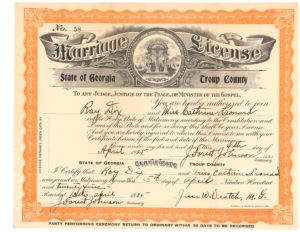 No. 58
Marriage License
State of Georgia Troup County
To any Judge, Justice of the Peace, or Minister of the Gospel.
You are hereby authorized to join
Roy Dix and Miss
in the Holy State of Matrimony according to the Constitution and
Laws of this State, and for so doing this shall be your License.
And you are hereby required to return this License to me with your
Certificate hereon of the fact and date of the Marriage.
Given under my hand and seal, this
April 1925
STATE OF GEORGIA CERTIFICATE TROUP COUNTY
I Certify that Roy Dix and Miss
were joined in Matrimony by me this day of April Nineteen Hundred
and twenty five
April 1925
Johnson
PARTY PERFORMING CEREMONY RETURN TO ORDINARY WITHIN 30 DAYS TO BE RECORDED